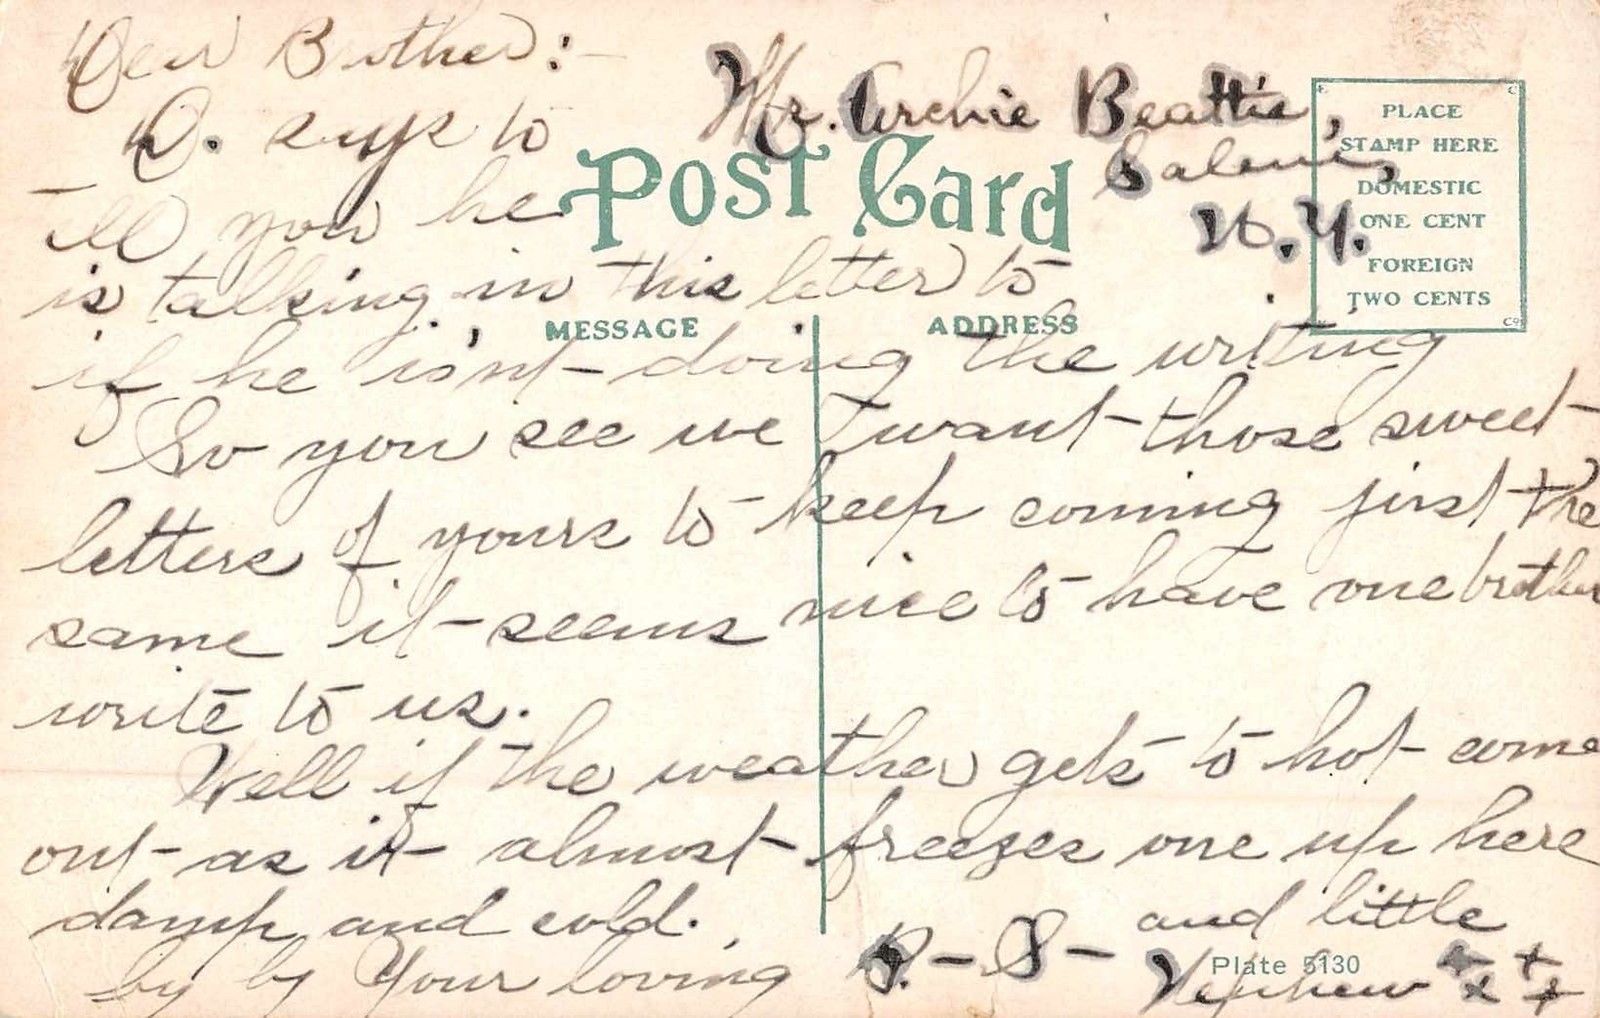 Dear Brother:-
D. says to
Mr. Archie Beattie,
Salem,
N.Y.
Post Card
PLACE
STAMP HERE
DOMESTIC
ONE CENT
FOREIGN
TWO CENTS
MESSAGE
ADDRESS
ell you he
is talking in this letter to
if he isn't doing the writing
So you see we want those sweet
letters of yours to keep coming just the
same it seems nice to have one brother
write to us.
Well if the weather gets to hot come
out as it almost freezes one up here
damp and cold.
by by Your loving
and little
Nephew
Plate 5130